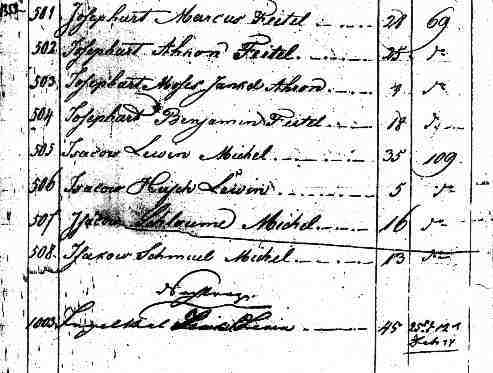 501 Josephart Marcus Feitel 20 69
502 Josephart Ahron Feitel 25 do
503 Josephart Moses Jankel Ahron 9 do
504 Josephart Benjamin Feitel 18 do
505 Isacow Lewin Michel 35 109
506 Isacow Hirsch Lewin 5 do
507 Isacow Schloume Michel 16 do
508 Isakow Schmuel Michel 13 do
1003 45